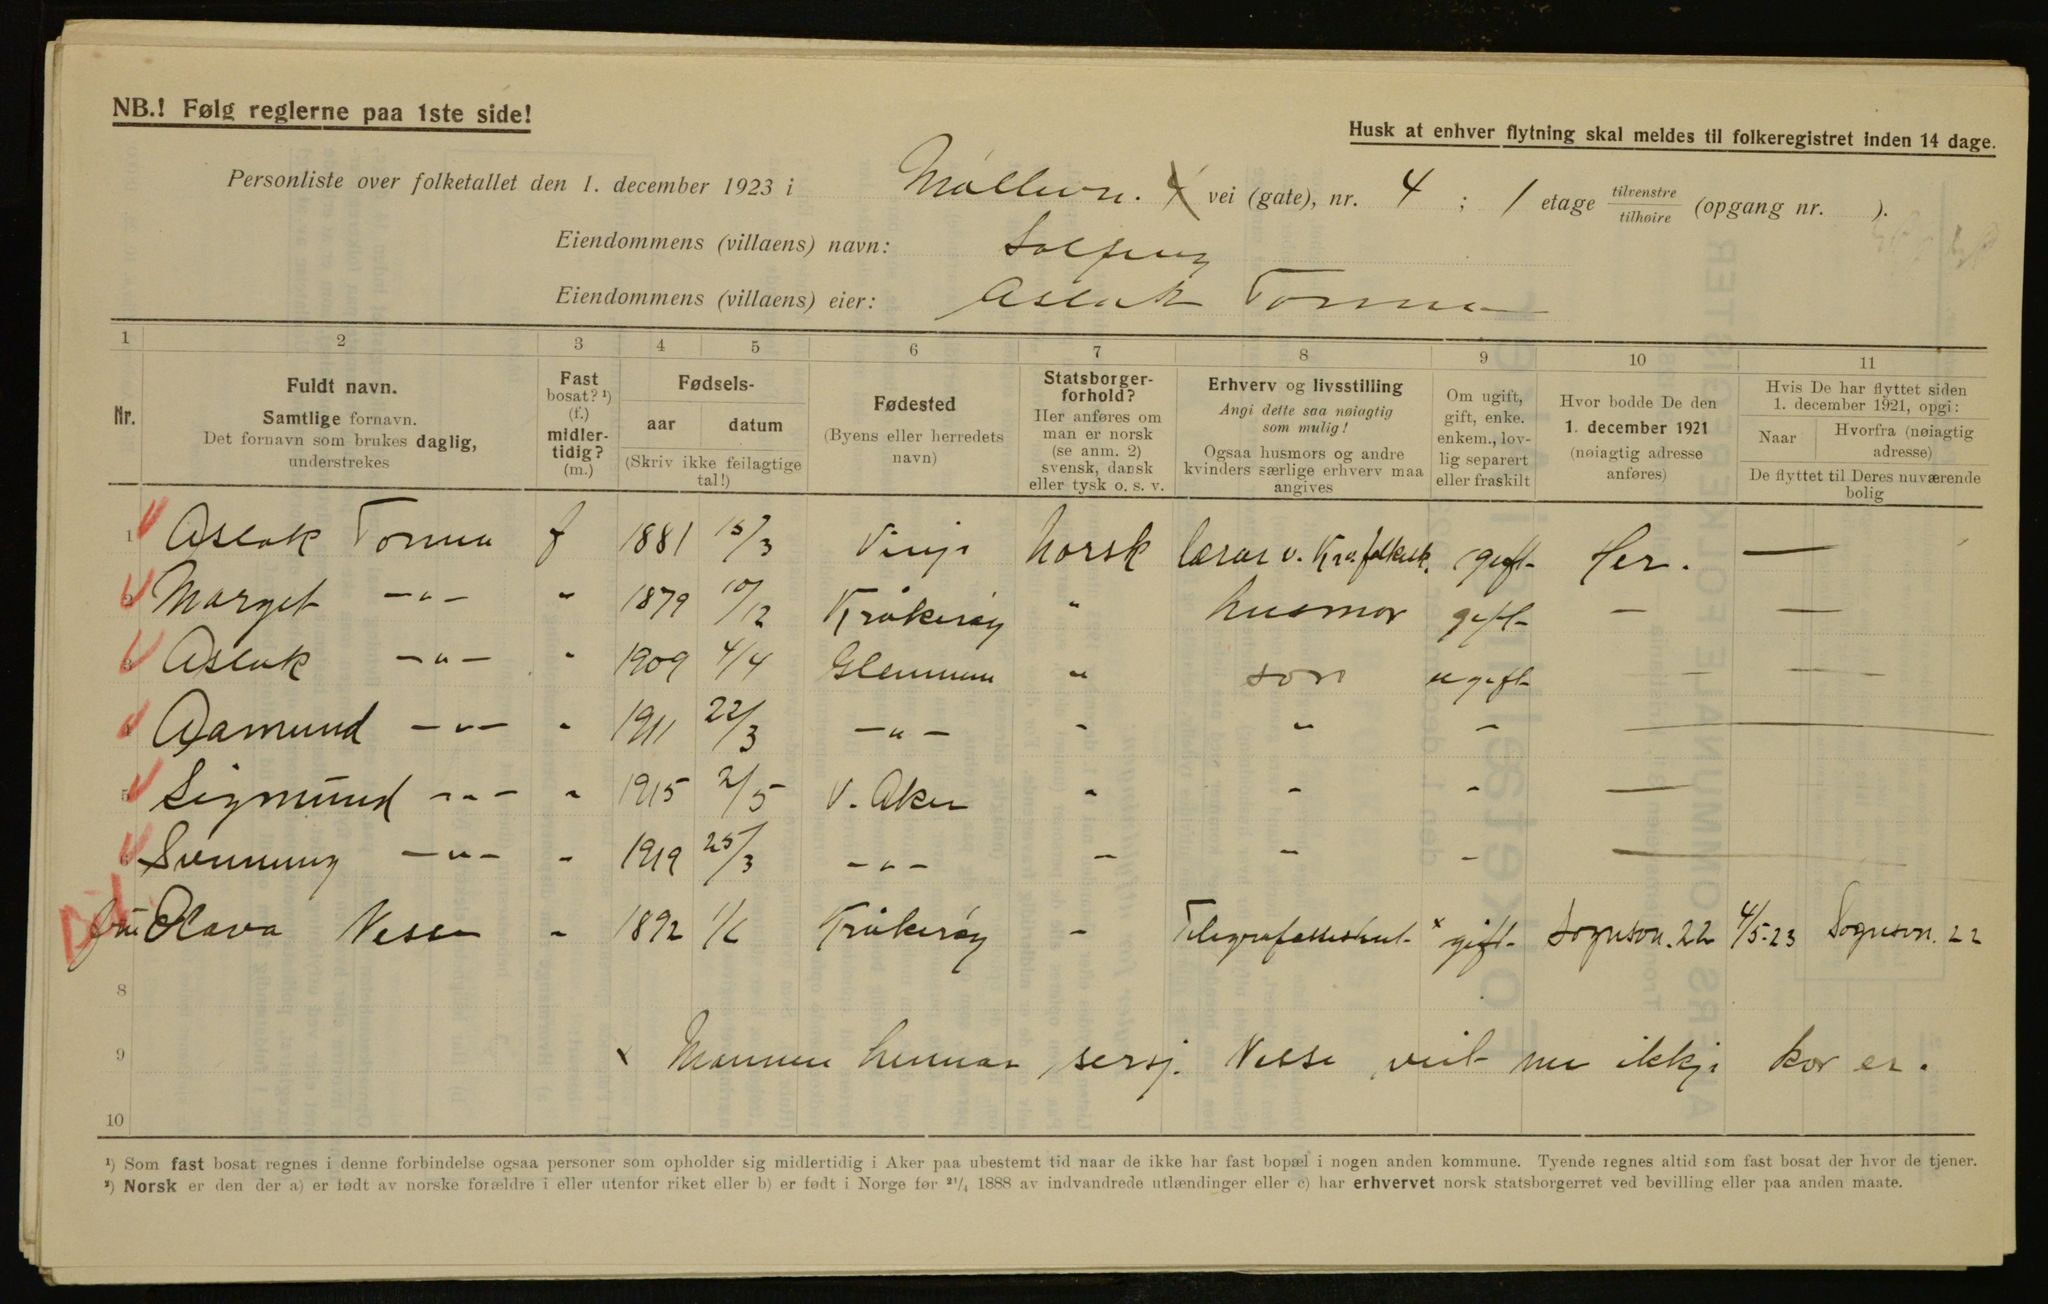 NB.! Følg reglerne paa 1ste side!
Husk at enhver flytning skal meldes til folkeregistret inden 14 dage.
Personliste over folketallet den 1. december 1923 i Møllevn. 4 vei (gate), nr. 4 ; 1 etage tilvenstre tilhøire (opgang nr. ).
Eiendommens (villaens) navn: Solfeng
Eiendommens (villaens) eier: Aslak Tonna
1 2 3 4 5 6 7 8 9 10 11
Nr.
Fuldt navn.
Samtlige fornavn.
Det fornavn som brukes daglig,
understrekes
Fast
bosat? ¹)
(f.)
midler-
tidig?
(m.)
Fødsels-
aar datum
(Skriv ikke feilagtige
tal!)
Fødested
(Byens eller herredets
navn)
Statsborger-
forhold?
Her anføres om
man er norsk
(se anm. 2)
svensk, dansk
eller tysk o. s. v.
Erhverv og livsstilling
Angi dette saa nøiagtig
som mulig!
Ogsaa husmors og andre
kvinders særlige erhverv maa
angives
Om ugift,
gift, enke.
enkem., lov-
lig separert
eller fraskilt
Hvor bodde De den
1. december 1921
(nøiagtig adresse
anføres)
Hvis De har flyttet siden
1. december 1921, opgi:
Naar Hvorfra (nøiagtig
adresse)
De flyttet til Deres nuværende
bolig
1 Aslak Tonna f 1881 15/3 Vinje Norsk lærar v. Kra. folkesk. gift Her. —
2 Marget —"— " 1879 10/12 Kråkerøy " husmor gift — —
3 Aslak —"— " 1909 4/4 Glemmen " son ugift — —
4 Aamund —"— " 1911 22/3 —"— " " " —
5 Sigmund —"— " 1915 2/5 V. Aker " " " —
6 Svenung —"— " 1919 25/3 —"— " " " —
Frū Olava Nesse " 1892 1/6 Kråkerøy " × gift Sognsvn. 22 4/5-23 Sognsvn. 22
8
9 × Mannen hennar, sersj. Nesse, veit me ikkje kor er.
10
¹) Som fast bosat regnes i denne forbindelse ogsaa personer som opholder sig midlertidig i Aker paa ubestemt tid naar de ikke har fast bopæl i nogen anden kommune. Tyende regnes altid som fast bosat der hvor de tjener.
²) Norsk er den der a) er født av norske forældre i eller utenfor riket eller b) er født i Norge før 21/4 1888 av indvandrede utlændinger eller c) har erhvervet norsk statsborgerret ved bevilling eller paa anden maate.